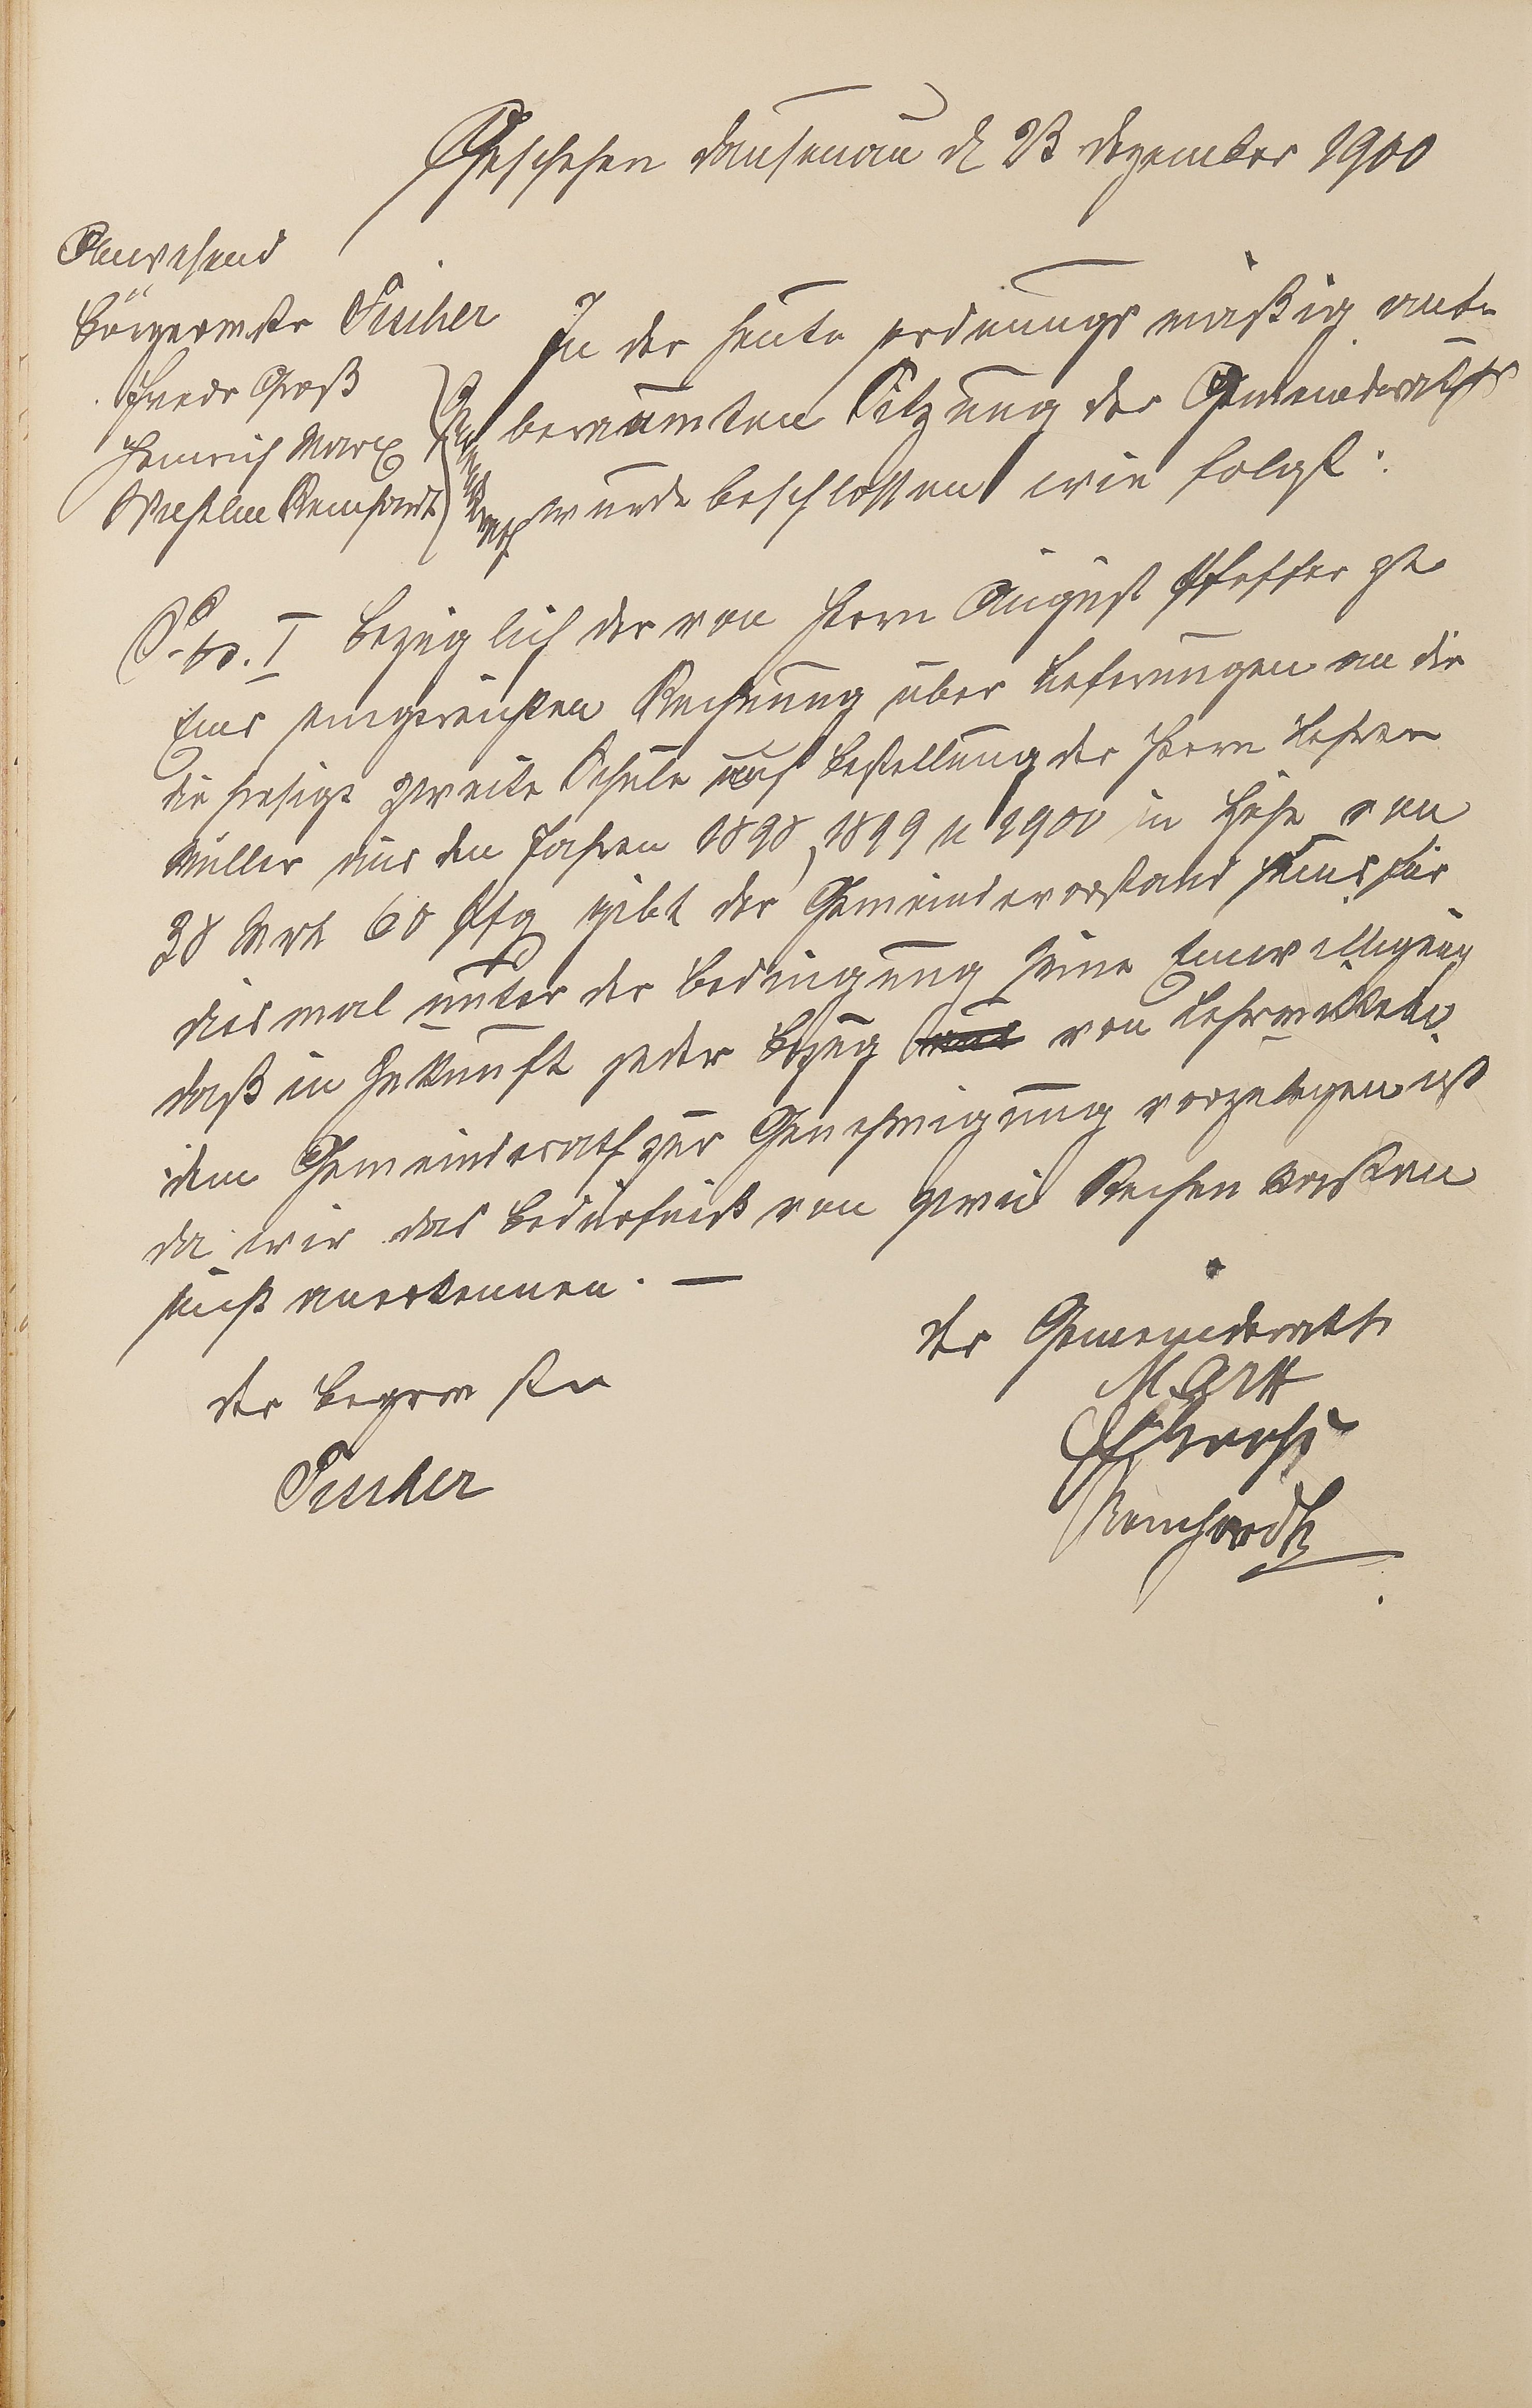 Geschehen Dausenau d 23 Dezember 1900
Anwesend
Bürgermstr Fischer
Friedr Groß
Heinrich Marx
Wilhelm Reinhardt
Gemeinderath
In der heute ordnungsmäßig anbe
beraumten Sitzung des Gemeinderaths
wurde beschlossen wie folgt:
Pto. I Bezüglich der von Herrn August Pfeffer zu
Ems eingereichten Rechnung über Lieferungen an die
die hiesige zweite Schule auf Bestellung des Herrn Lehrer
Müller aus den Jahren 1898, 1899 u 1900 in Höhe von
38 Mrk 60 Pfg gibt der Gemeindevorstand hins für
diesmal unter der Bedingung seine Einwilligung
daß in Zukunft jeder Bezug von Lehrmitteln
dem Gemeinderath zur Genehmigung vorzulegen ist
da wir das Bedürfniß von zwei Rechenkasten
nicht anerkennen. —
Der Gemeinderath
Marx
F Gross
Reinhardt
Der Bügermstr
Fischer